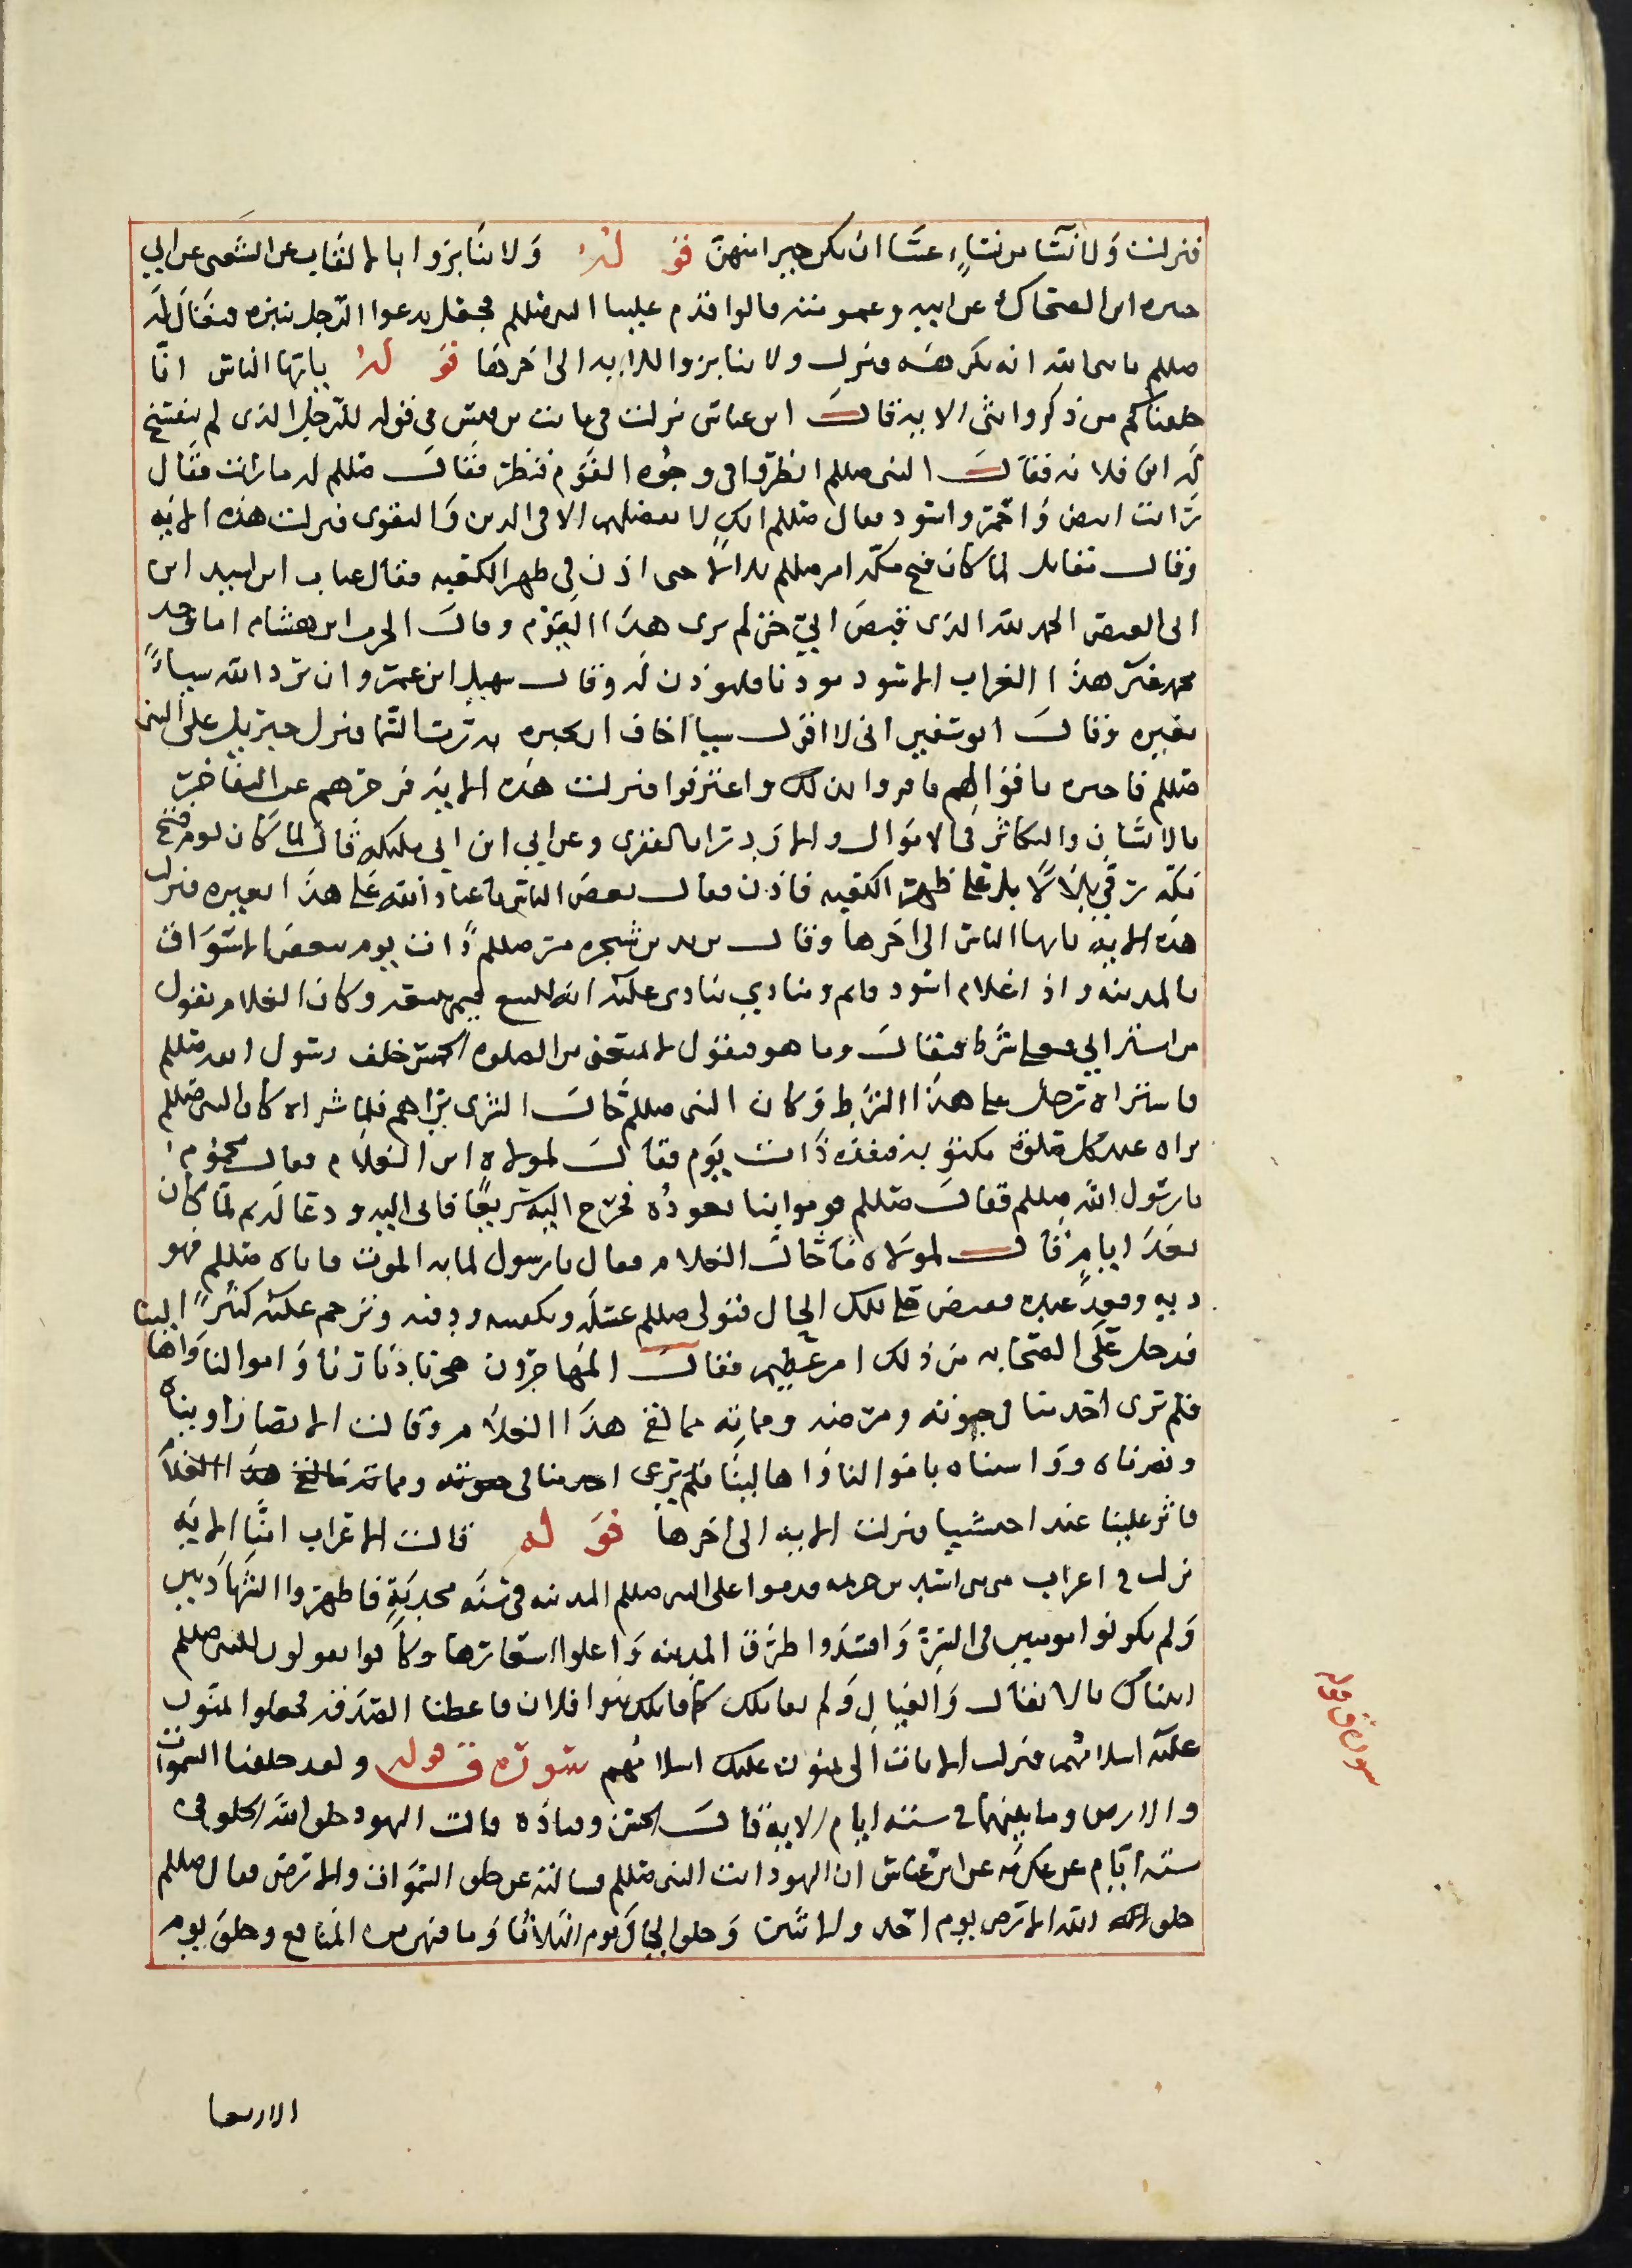 فنزلت ولا نسا من نساء عسا ان يكن خيرا منهن قوله ولا تنابزوا بالالقاب عن الشعبى عن ابي
جبيره ابن الضحاك عن ابيه وعمومته قالوا قدم علينا النبى صللم فجعل يدعوا الرجل بنبزه فيقال له
صللم يا رسول الله انه يكرهه فنزل ولا تنابزوا الايه الى اخرها قوله يايها الناس انا
خلقناكم من ذكر وانثى الايه قال ابن عباس نزلت فى ثابت بن قيس فى قوله للرجل الذى لم يفتسح
له ابن فلانه فقال النبى صللم انظروا فى وجوه القوم فنظر فقال صللم له ما رايت فقال
رايت ابيض واحمر واسود فقال صللم انك لا تفضلهم الا فى الدين والتقوى فنزلت هذه الايه
وقال مقاتل لما كان فتح مكه امر صللم بلالا حتى اذن فى ظهر الكعبه فقال عتاب ابن اسيد ابن
ابى العيص الحمد لله الذى قبض ابي حتى لم يرى هذا اليوم وقال الحرث ابن هشام اما وجد
محمد غير هذا الغراب الاسود موذنا فليوذن له وقال سهيل ابن عمرو ان يرد الله سياءً
يغيره وقال ابو سفين انى لا اقول سيا اخاف ان يخبره به رب السما فنزل جبريل على النبى
صللم فاخبره باقوالهم فاقروا بذلك واعترفوا فنزلت هذه الايه فزجرهم عن التفاخر
بالانساب والتكاثر فى الاموال والازدرا بالفقرى وعن ابي ابن ابي مليكه قال لما كان يوم فتح
مكه رقى بلالا على ظهر الكعبه فاذن فقال بعض الناس يا عباد الله على هذا العبيره فنزلت
هذه الايه يايها الناس الى اخرها وقال يزيد بن شجره مر صللم ذات يوم ببعض الاسواق
بالمدينه واذا غلام اسود قايم ومنادي ينادى عليه انه للبيع فيمن يزيد وكان الغلام يقول
من اشترانى فعلى شرط فيقال وما هو فيقول لا يمنعنى من الصلوه الخمس خلف رسول الله صللم
فاشتراه رجل على هذا الشرط وكان النبى صللم
يراه عند كل صلوة مكتوبه ففقده ذات يوم فقال لمولاه اين الغلام فقال محموم
يا رسول الله صللم فقال صللم قوموا بنا نعوده فخرج اليه سريعا فاتى اليه ودعا له ثم لما كان
بعد ايام قال لمولاه ما حال الغلام فقال يا رسول لما به الموت فاتاه صللم فهو
فقبض على تلك الحال فتولى صللم غسله وتكفينه ودفنه وترحم عليه كثيرا
فدخل على الصحابه من ذلك امر عظيم فقال المهاجرون هجرنا ديارنا واموالنا واهالينا
فلم ترى احد منا فى حيوته ومرضه ومماته ما لقى هذا الغلام وقالت الانصار اويناه
ونصرناه وواسيناه باموالنا واهالينا فلم يرى احد منا فى حيوته ومماته ما لقى هذا الغلام
فاثر علينا عبدا حبشيا فنزلت الايه الى اخرها قوله قالت الاعراب امنا الايه
نزلت فى اعراب من بنى اسد بن خزيمه قدموا على النبى صللم المدينه فى سنه مجدبة فاظهروا الشهادتين
ولم يكونوا مومنين فى السر وافسدوا طرق المدينه واغلوا اسعارها وكانوا يقولون للنبى صللم
اتيناك بالاثقال والعيال ولم نقاتلك كما قاتلك بنوا فلان فاعطنا الصدقه فجعلوا يمنون
عليه اسلامهم فنزلت الايات الى يمنون عليك اسلامهم سورة ق قوله ولقد خلقنا السموات
والارض وما بينهما فى سته ايام الايه قال الحسن وقتاده قالت اليهود خلق الله الخلق فى
سته ايام عن عكرمه عن ابن عباس ان اليهود اتت النبى صللم فسالته عن خلق السموات والارض فقال صللم
خلق الله الارض يوم احد والاثنين وخلق الجبال يوم الثلاثا وما فيهن من المنافع وخلق يوم
سورة ق قوله
الاربعا